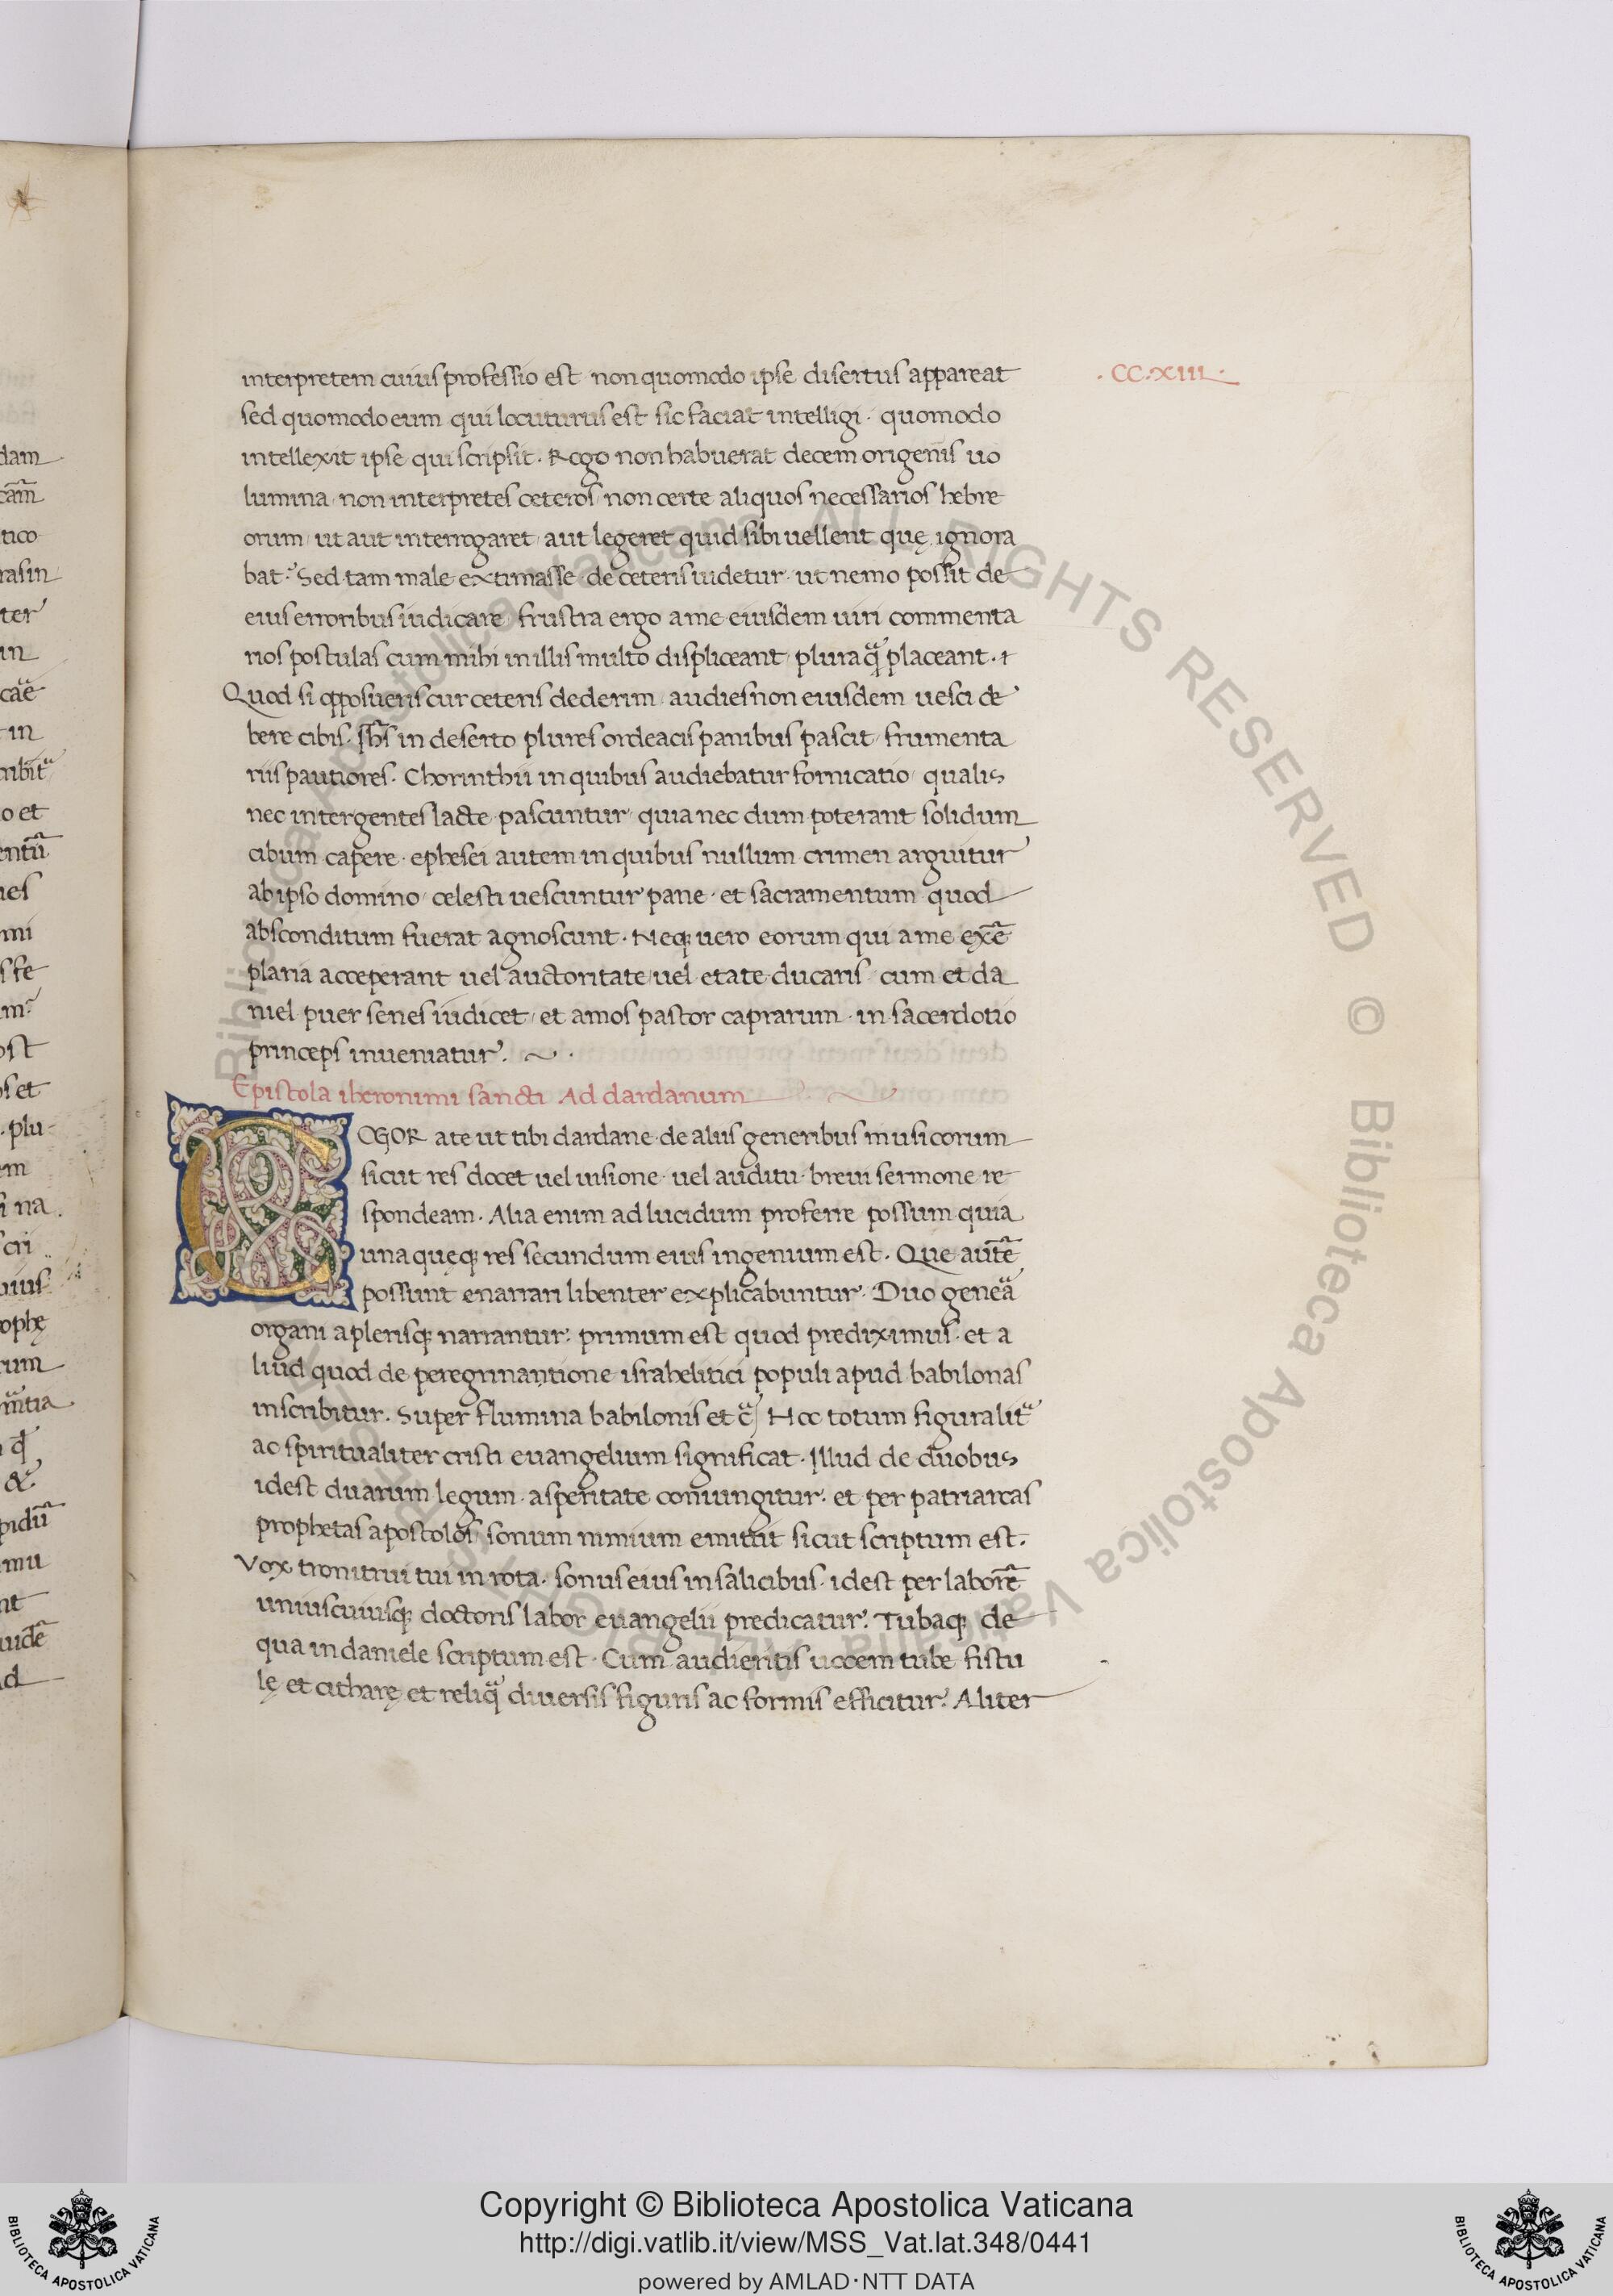 interpretem cuius professio est non quomodo ipse disertus appareat
.CC.XIII.
sed quomodo eum qui locuturus est sic faciat intelligi. quomodo
intellexit ipse qui scripsit. Rogo non habuerat decem origenis uo
lumina non interpretes ceteros non certe aliquos necessarios hebre
orum ut aut interrogaret aut legeret quid sibi uellent quę ignora
bat? Sed tam male extimasse de ceteris uidetur ut nemo possit de
eius erroribus iudicare frustra ergo a me eiusdem uiri commenta
rios postulas cum mihi in illis multo displiceant plura q̃ placeant.
Quod si opposueris cur ceteris dederim audies non eiusdem uesci de
bere cibis. Ihs̃ in deserto plures ordeacis panibus pascit frumenta
riis pautiores. Chorinthii in quibus audiebatur fornicatio qualis
nec inter gentes lacte pascuntur quia nec dum poterant solidum
cibum capere. ephesei autem in quibus nullum crimen arguitur
ab ipso domino celesti uescuntur pane et sacramentum quod
absconditum fuerat agnoscunt. Neq; uero eorum qui a me exẽ
plaria acceperant uel auctoritate uel etate ducaris cum et da
niel puer senes iudicet et amos pastor caprarum in sacerdotio
princeps inueniatur.
Epistola iheronimi sancti Ad dardanum
COGOR a te ut tibi dardane de aliis generibus musicorum
sicut res docet uel uisione uel auditu breui sermone re
spondeam. Alia enim ad lucidum proferre possum quia
una queq; res secundum eius ingenium est. Que autẽ
possunt enarrari libenter explicabuntur. Duo geneã
organi a plerisq; narrantur: primum est quod prediximus et a
liud quod de peregrinantione israhelitici populi apud babilonas
inscribitur. Super flumina babilonis et c̃ Hoc totum figuralit̃
ac spiritualiter cristi euangelium significat. Illud de duobus
idest duarum legum asperitate coniungitur et per patriarcas
prophetas apostolos sonum nimium emittit sicut scriptum est.
Vox tronitrui tui in rota. sonus eius in salicibus. idest per laborẽ
uniuscuiusq; doctoris labor euangelii predicatur. Tubaq; de
qua in daniele scriptum est. Cum audientis uocem tube fistu
lę et citharę et reliq̃ diuersis figuris ac formis efficitur. Aliter
Biblioteca Apostolica Vaticana ALL RIGHTS RESERVED © Biblioteca Apostolica Vaticana ALL RIGHTS RESERVED ©
Copyright © Biblioteca Apostolica Vaticana
http://digi.vatlib.it/view/MSS_Vat.lat.348/0441
powered by AMLAD·NTT DATA
BIBLIOTECA APOSTOLICA VATICANA
BIBLIOTECA APOSTOLICA VATICANA